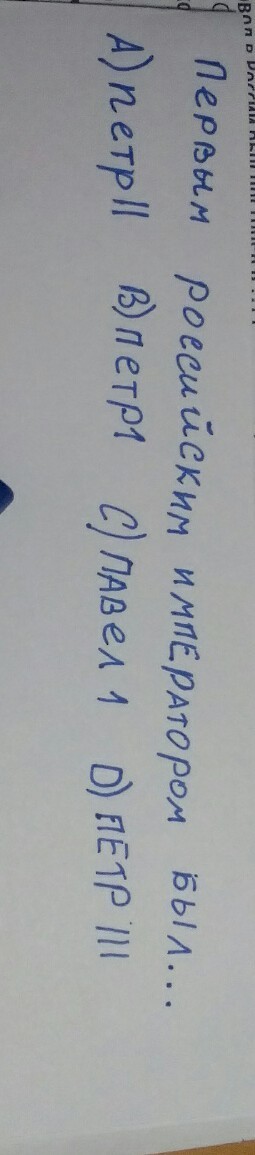 Первым российским императором был...
А) Петр II В) Петр 1 С) Павел 1 D) ПЁТР III